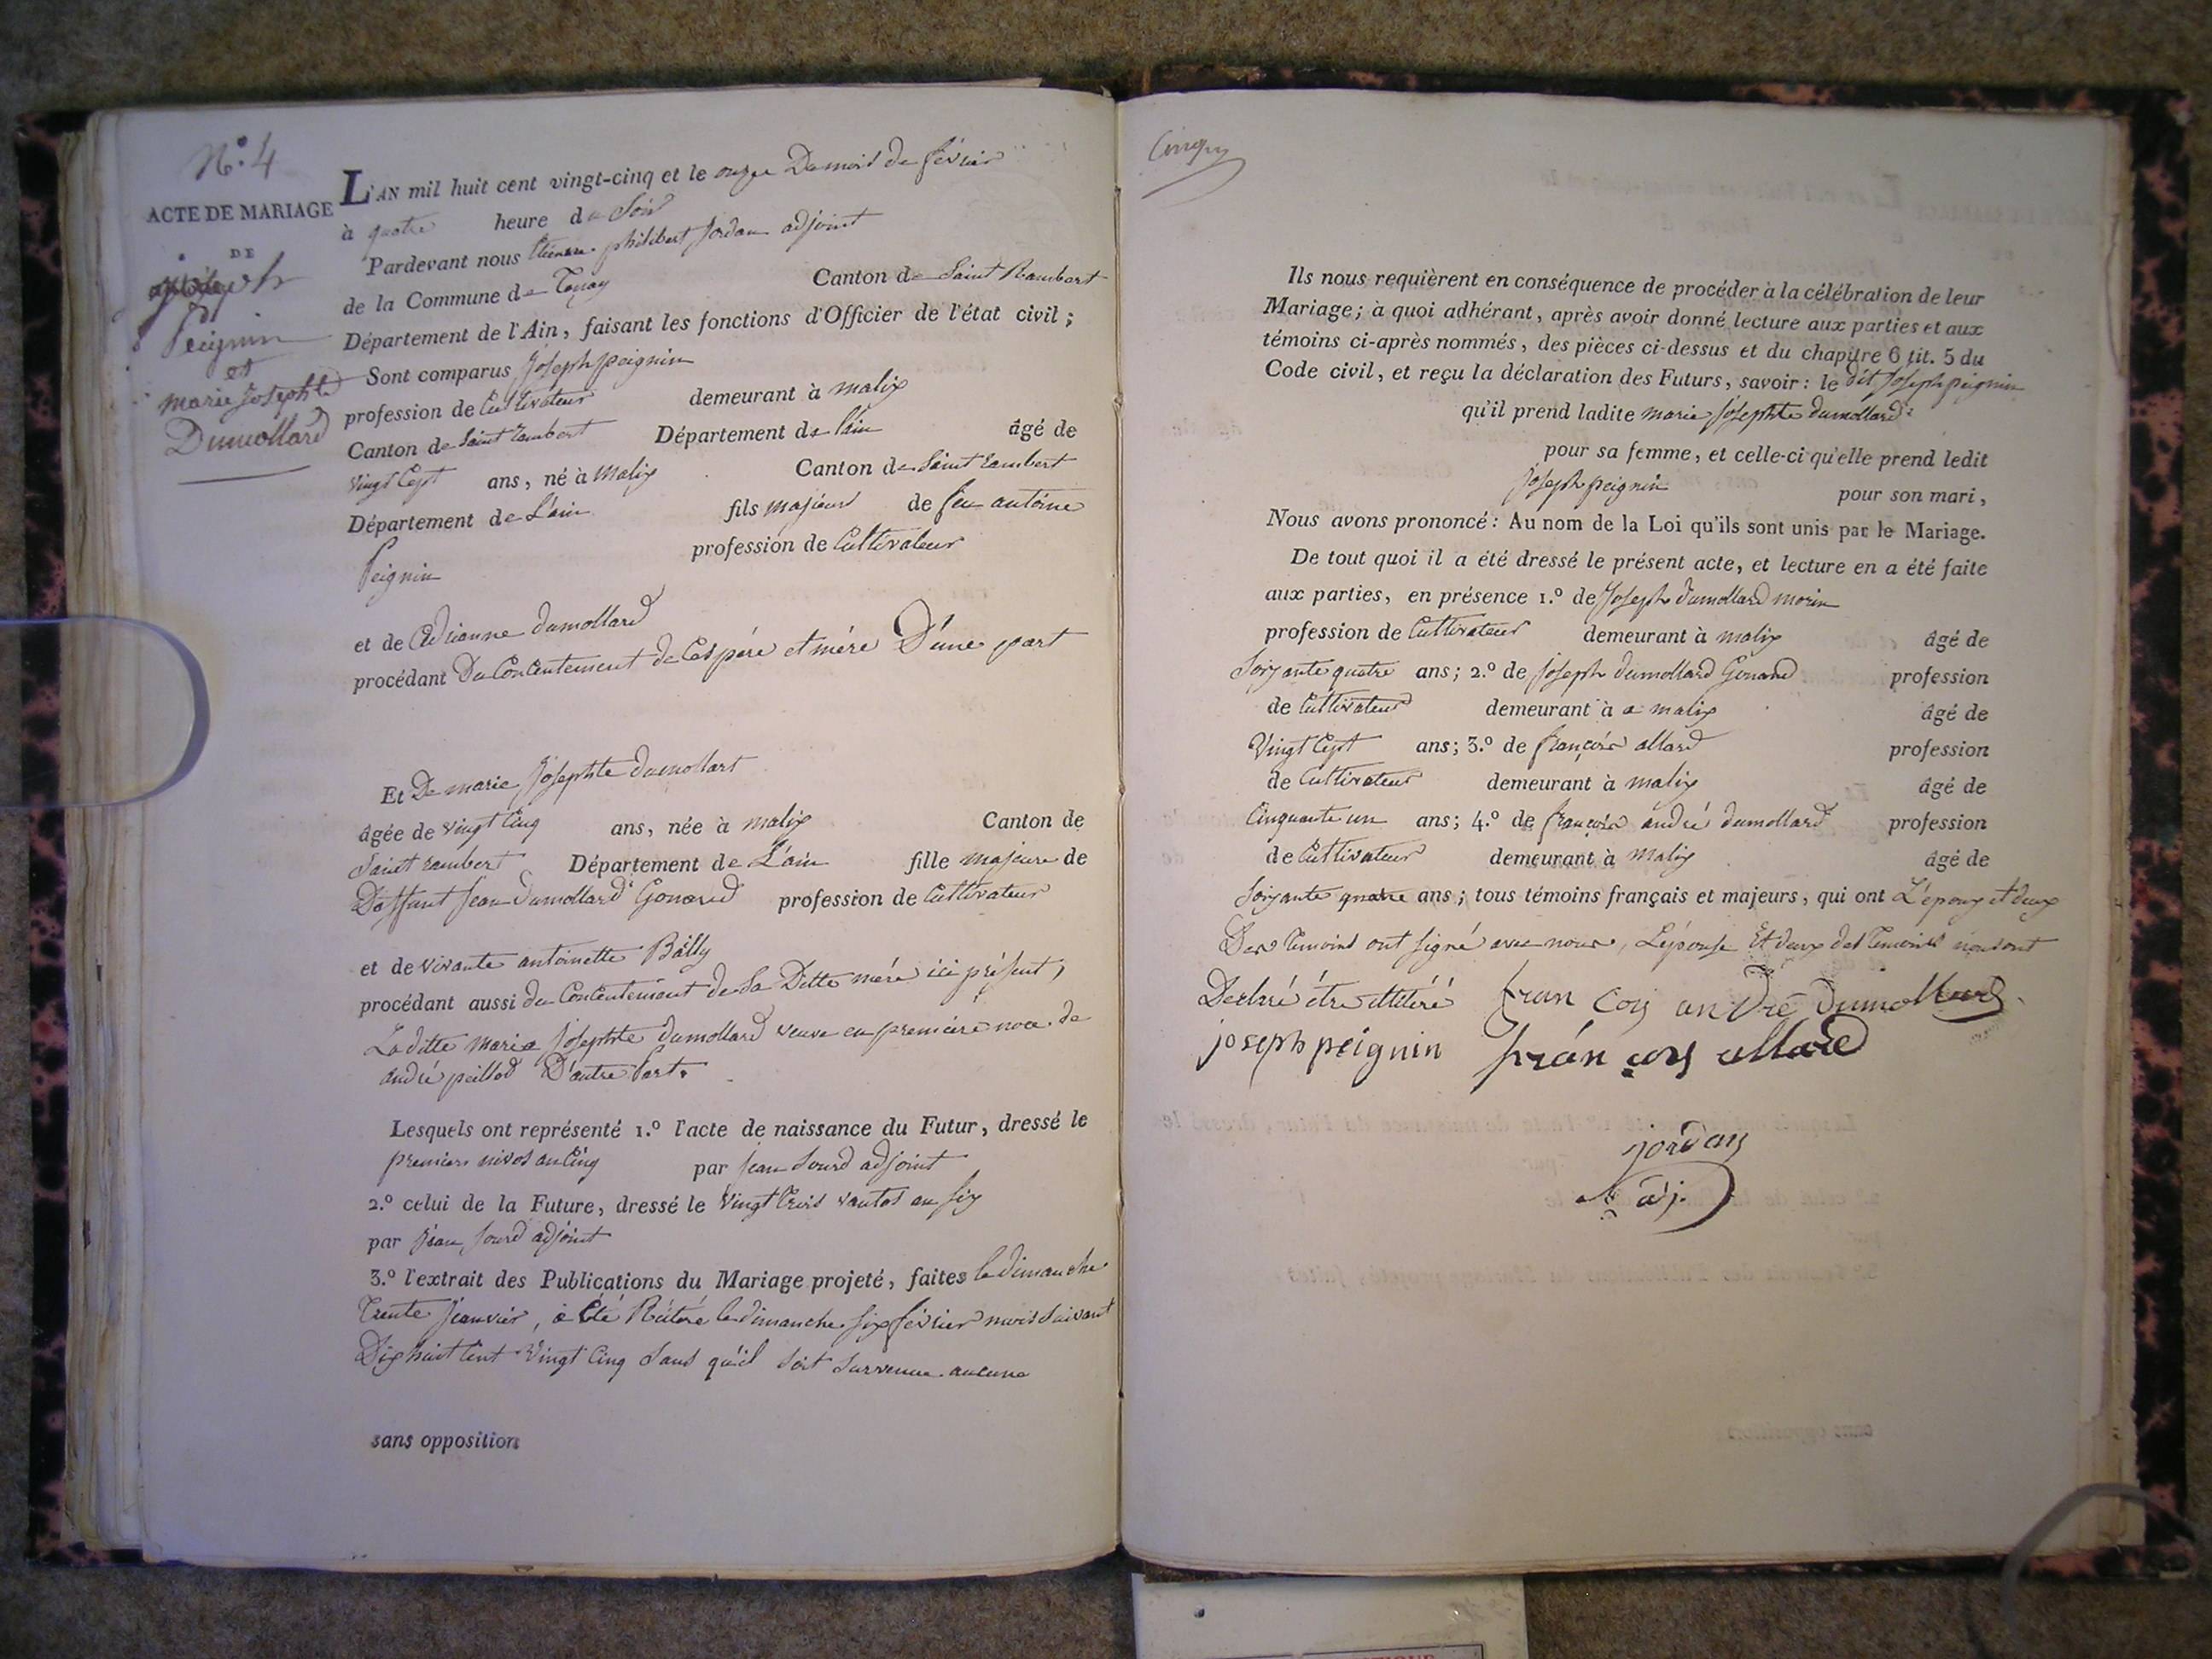 N.º 4
ACTE DE MARIAGE
DE
joseph
Peignin
et
marie Josephte
Dumollard
L'AN mil huit cent vingt-cinq et le onze Du mois de février
à quatre heure du Soir
Pardevant nous Etienne philibert Jordan adjoint
de la Commune de Tenay Canton de Saint Rambert
Département de l'Ain, faisant les fonctions d'Officier de l'état civil;
Sont comparus Joseph peignin
profession de Cultivateur demeurant à malix
Canton de Saint rambert Département de l'ain âgé de
vingt Cept ans, né à malix Canton de Saint rambert
Département de L'ain fils majeur de feu antoine
Peignin profession de Cultivateur
et de Adrianne dumollard
procédant Du Concentement de Ces père et mère D'une part
Et De marie Josephte dumollart
âgée de vingt Cinq ans, née à malix Canton de
Saint rambert Département de L'ain fille majeure de
Deffunt Jean Dumollard Gonard profession de Cultivateur
et de vivante antoinette Bailly
procédant aussi du Concentement de Sa Ditte mère ici présent,
La ditte marie Josephte dumollard veuve en première noce de
andré peillod D'autre Part.
Lesquels ont représenté 1.º l'acte de naissance du Futur, dressé le
premier nivos an Cinq par Jean Sourd adjoint
2.º celui de la Future, dressé le vingt trois vantos an six
par Jean Sourd adjoint
3.º l'extrait des Publications du Mariage projeté, faites le dimanche
Trente Jeanvier, a été Réitéré le dimanche six février mois suivant
Dix huit Cent Vingt Cinq Sans qu'il soit survenue aucune
sans opposition
Ils nous requièrent en conséquence de procéder à la célébration de leur
Mariage; à quoi adhérant, après avoir donné lecture aux parties et aux
témoins ci-après nommés, des pièces ci-dessus et du chapitre 6 tit. 5 du
Code civil, et reçu la déclaration des Futurs, savoir: le dit Joseph peignin
qu'il prend ladite marie Josephte dumollard
pour sa femme, et celle-ci qu'elle prend ledit
Joseph peignin pour son mari,
Nous avons prononcé: Au nom de la Loi qu'ils sont unis par le Mariage.
De tout quoi il a été dressé le présent acte, et lecture en a été faite
aux parties, en présence 1.º de Joseph dumollard morin
profession de Cultivateur demeurant à malix âgé de
Soixante quatre ans; 2.º de Joseph dumollard Gonard profession
de Cultivateur demeurant à a malix âgé de
Vingt Cept ans; 3.º de françois allard profession
de Cultivateur demeurant à malix âgé de
Cinquante un ans; 4.º de françois andré dumollard profession
de Cultivateur demeurant à malix âgé de
Soixante quatre ans; tous témoins français et majeurs, qui ont L'époux et deux
Des Temoins ont signé avec nous, L'épouse Et deux des Temoins nous ont
Declaré être illitéré fran Cois an dré dumollard
joseph peignin françois allard
jordan
adj.